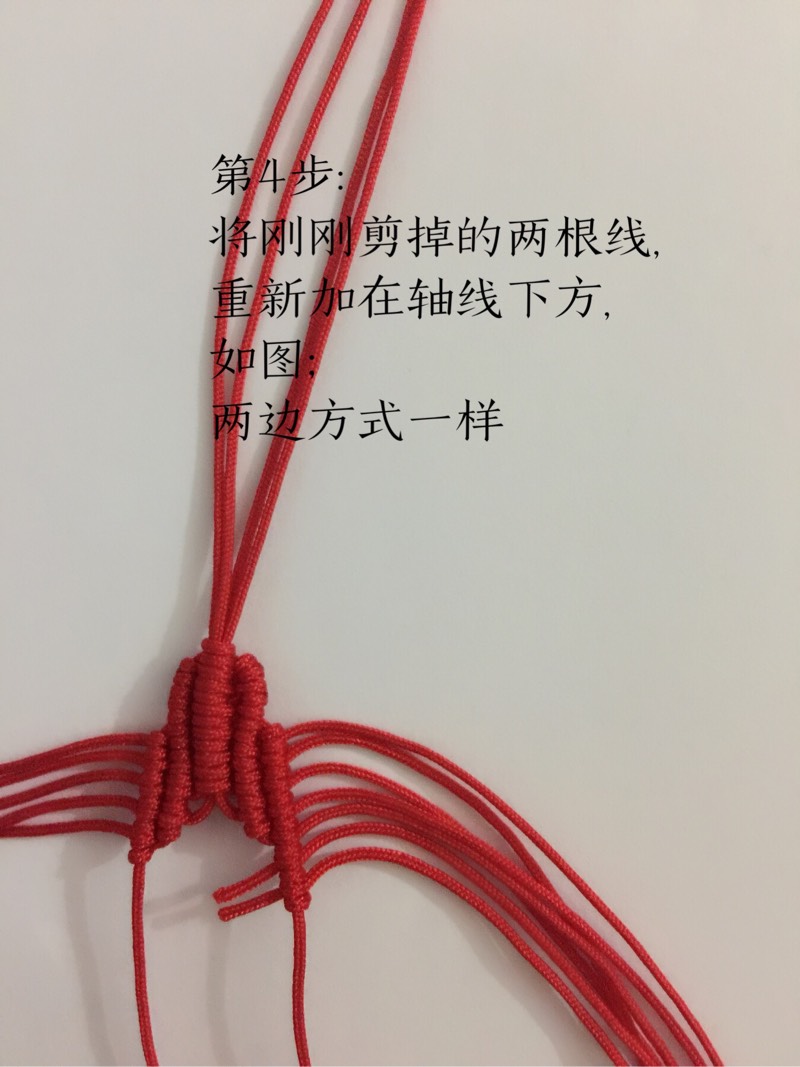 第4步:
将刚刚剪掉的两根线,
重新加在轴线下方,
如图;
两边方式一样